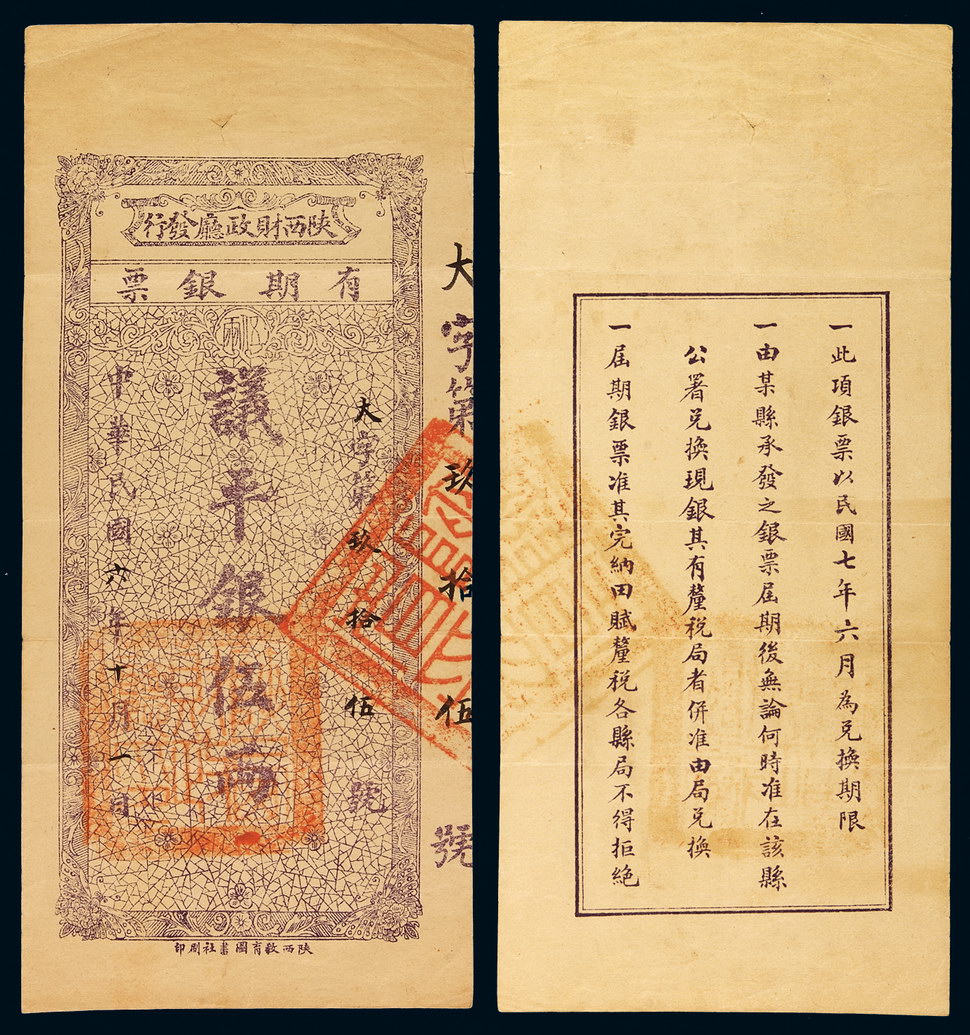 陝西財政廳發行
有期銀票
大字第玖拾伍號
大字第玖拾伍號
議平銀伍兩
中華民國六年十月一日
陝西教育圖書社刷印
一此項銀票以民國七年六月為兌換期限
一由某縣承發之銀票屆期後無論何時准在該縣
公署兌換現銀其有釐稅局者併准由局兌換
一屆期銀票准其完納田賦釐稅各縣局不得拒絕